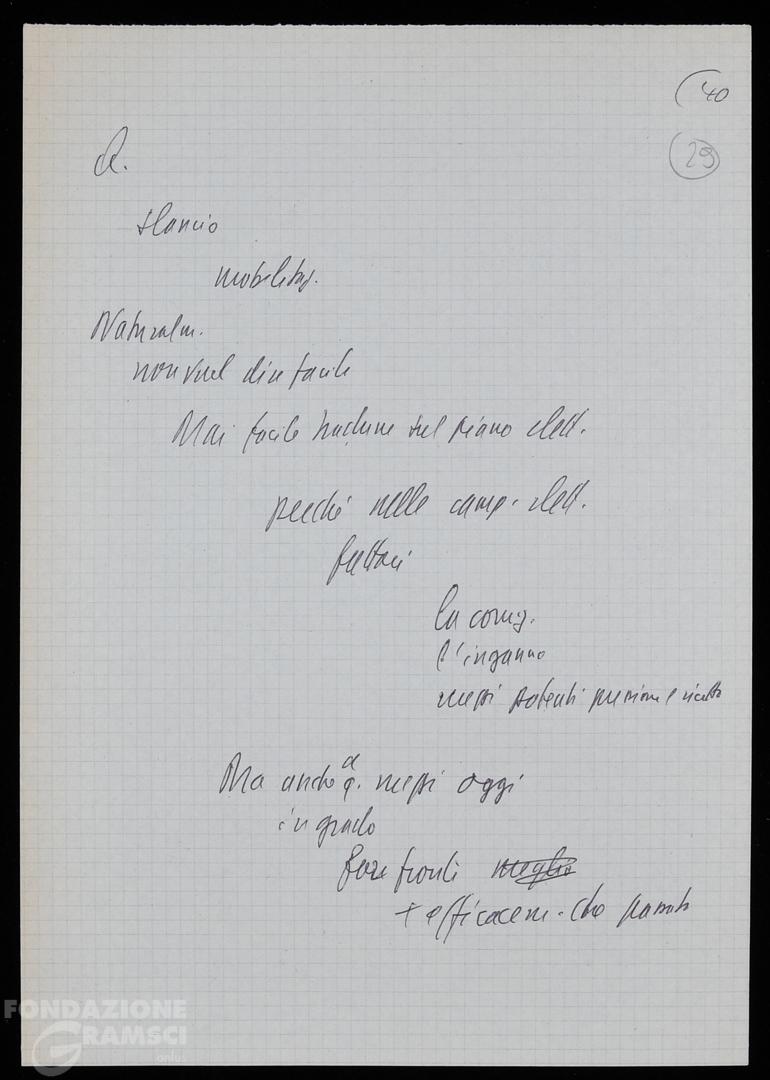 (40
(29)
d.
slancio
mobilitaz.
Naturalm.
non vuol dire facile
Mai facile tradurre sul piano elett.
perché nelle camp. elett.
fattori
la corruz.
l'inganno
mezzi potenti pressione e ricatto
Ma anche a q. mezzi oggi
in grado
fare fronte meglio
+ efficacem. che passato
FONDAZIONE
GRAMSCI
onlus